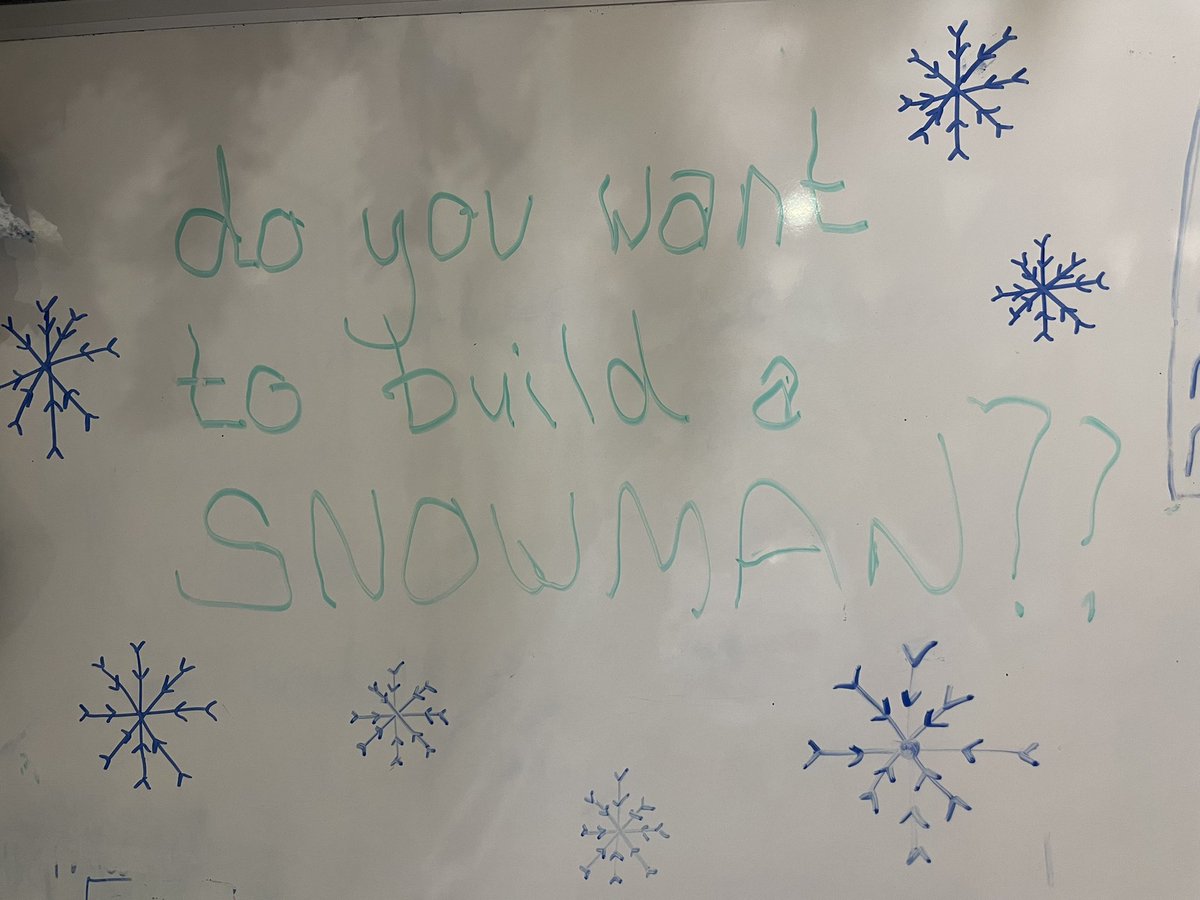 do you want
to build a
SNOWMAN??